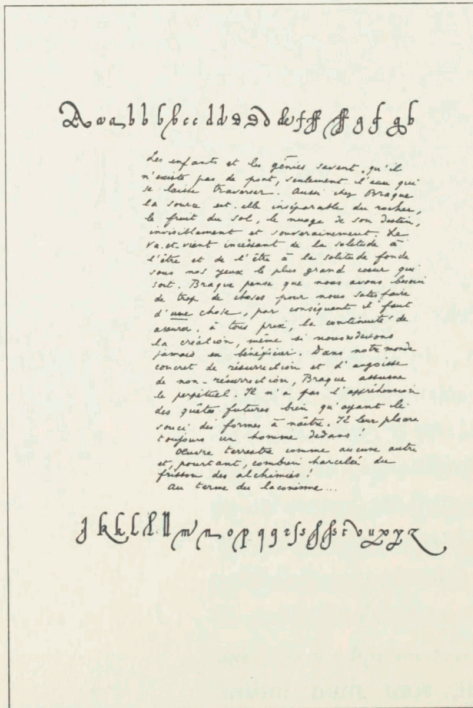 A a a b b b b c c d d d & f g f g b
Les enfants et les génies savent qu'il
n'existe pas de pont, seulement l'eau qui
se laisse traverser. Aussi chez Braque
la source est-elle inséparable du rocher,
le fruit du sol, le nuage de son destin,
invisiblement et souverainement. Le
va-et-vient incessant de la solitude à
l'être et de l'être à la solitude fonde
sous nos yeux le plus grand cœur qui
soit. Braque pense que nous avons besoin
de trop de choses pour nous satisfaire
d'une chose, par conséquent il faut
assurer, à tout prix, la continuité de
la création, même si nous ne devons
jamais en bénéficier. Dans notre monde
concret de résurrection et d'angoisse
de non-résurrection, Braque assume
le perpétuel. Il n'a pas l'appréhension
des quêtes futures bien qu'ayant le
souci des formes à naître. Il leur placera
toujours un homme dedans !
Œuvre terrestre comme aucune autre
et, pourtant, combien harcelée du
frisson des alchimies !
Au terme du laconisme...
k k l l m n o p q r s t v u x y z